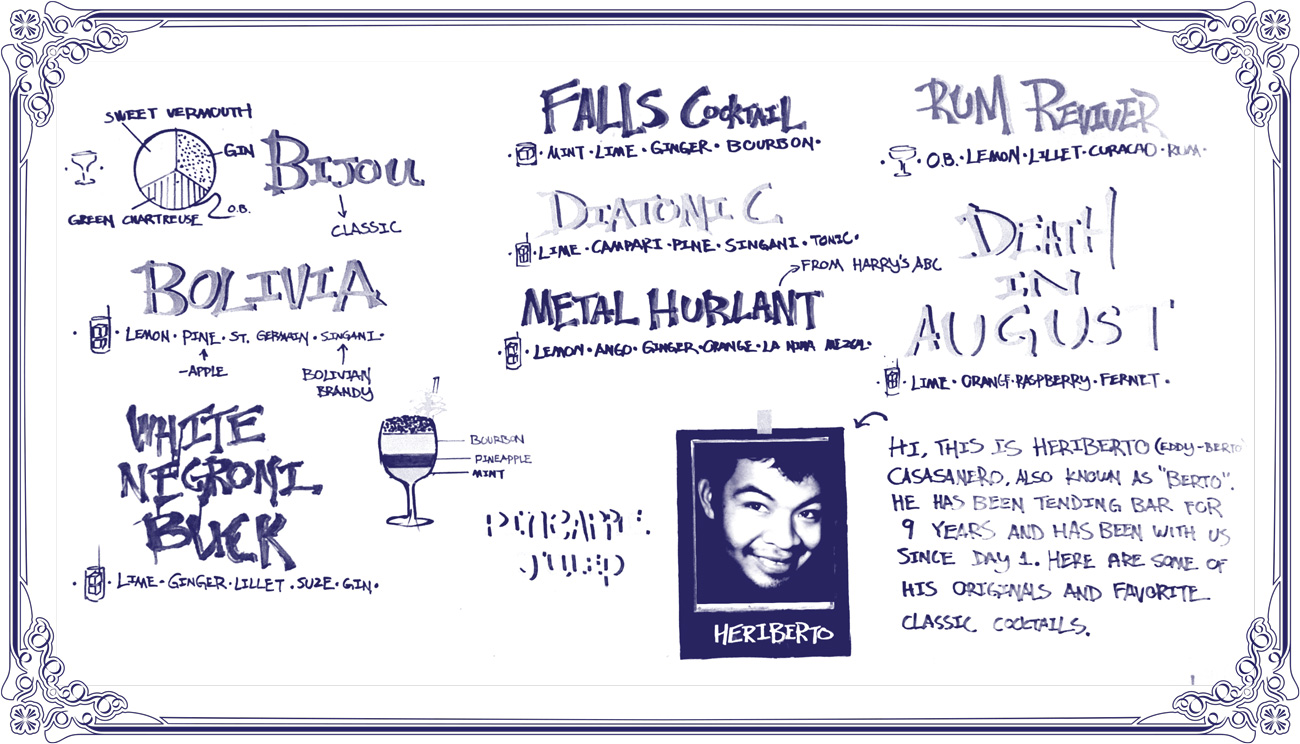 SWEET VERMOUTH
GIN
GREEN CHARTREUSE
O.B.
BIJOU
CLASSIC
BOLIVIA
LEMON · PINE · ST. GERMAIN · SINGANI ·
-APPLE
BOLIVIAN
BRANDY
WHITE
NEGRONI
BUCK
· LIME · GINGER · LILLET · SUZE · GIN ·
BOURBON
PINEAPPLE
MINT
PINEAPPLE
JULEP
FALLS COCKTAIL
· MINT · LIME · GINGER · BOURBON ·
DIATONIC
· LIME · CAMPARI · PINE · SINGANI · TONIC ·
FROM HARRY'S ABC
METAL HURLANT
· LEMON · ANGO · GINGER · ORANGE · LA NINA MEZCAL ·
RUM REVIVER
· O.B. · LEMON · LILLET · CURACAO · RUM ·
DEATH
IN
AUGUST
· LIME · ORANGE · RASPBERRY · FERNET ·
HERIBERTO
HI, THIS IS HERIBERTO (EDDY-BERTO
CASASANERO, ALSO KNOWN AS "BERTO".
HE HAS BEEN TENDING BAR FOR
9 YEARS AND HAS BEEN WITH US
SINCE DAY 1. HERE ARE SOME OF
HIS ORIGINALS AND FAVORITE
CLASSIC COCKTAILS.